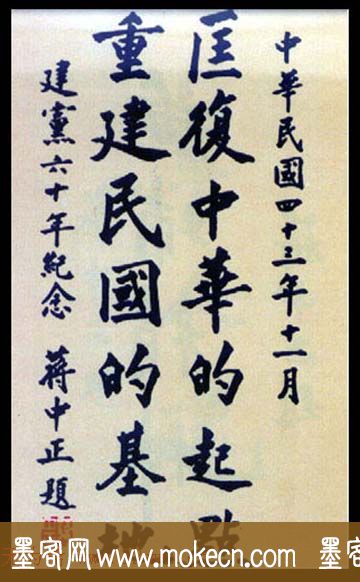 中華民國四十三年十一月
匡復中華的起點
重建民國的基地
建黨六十年紀念 蔣中正題
墨客网 www.mokecn.com 墨客